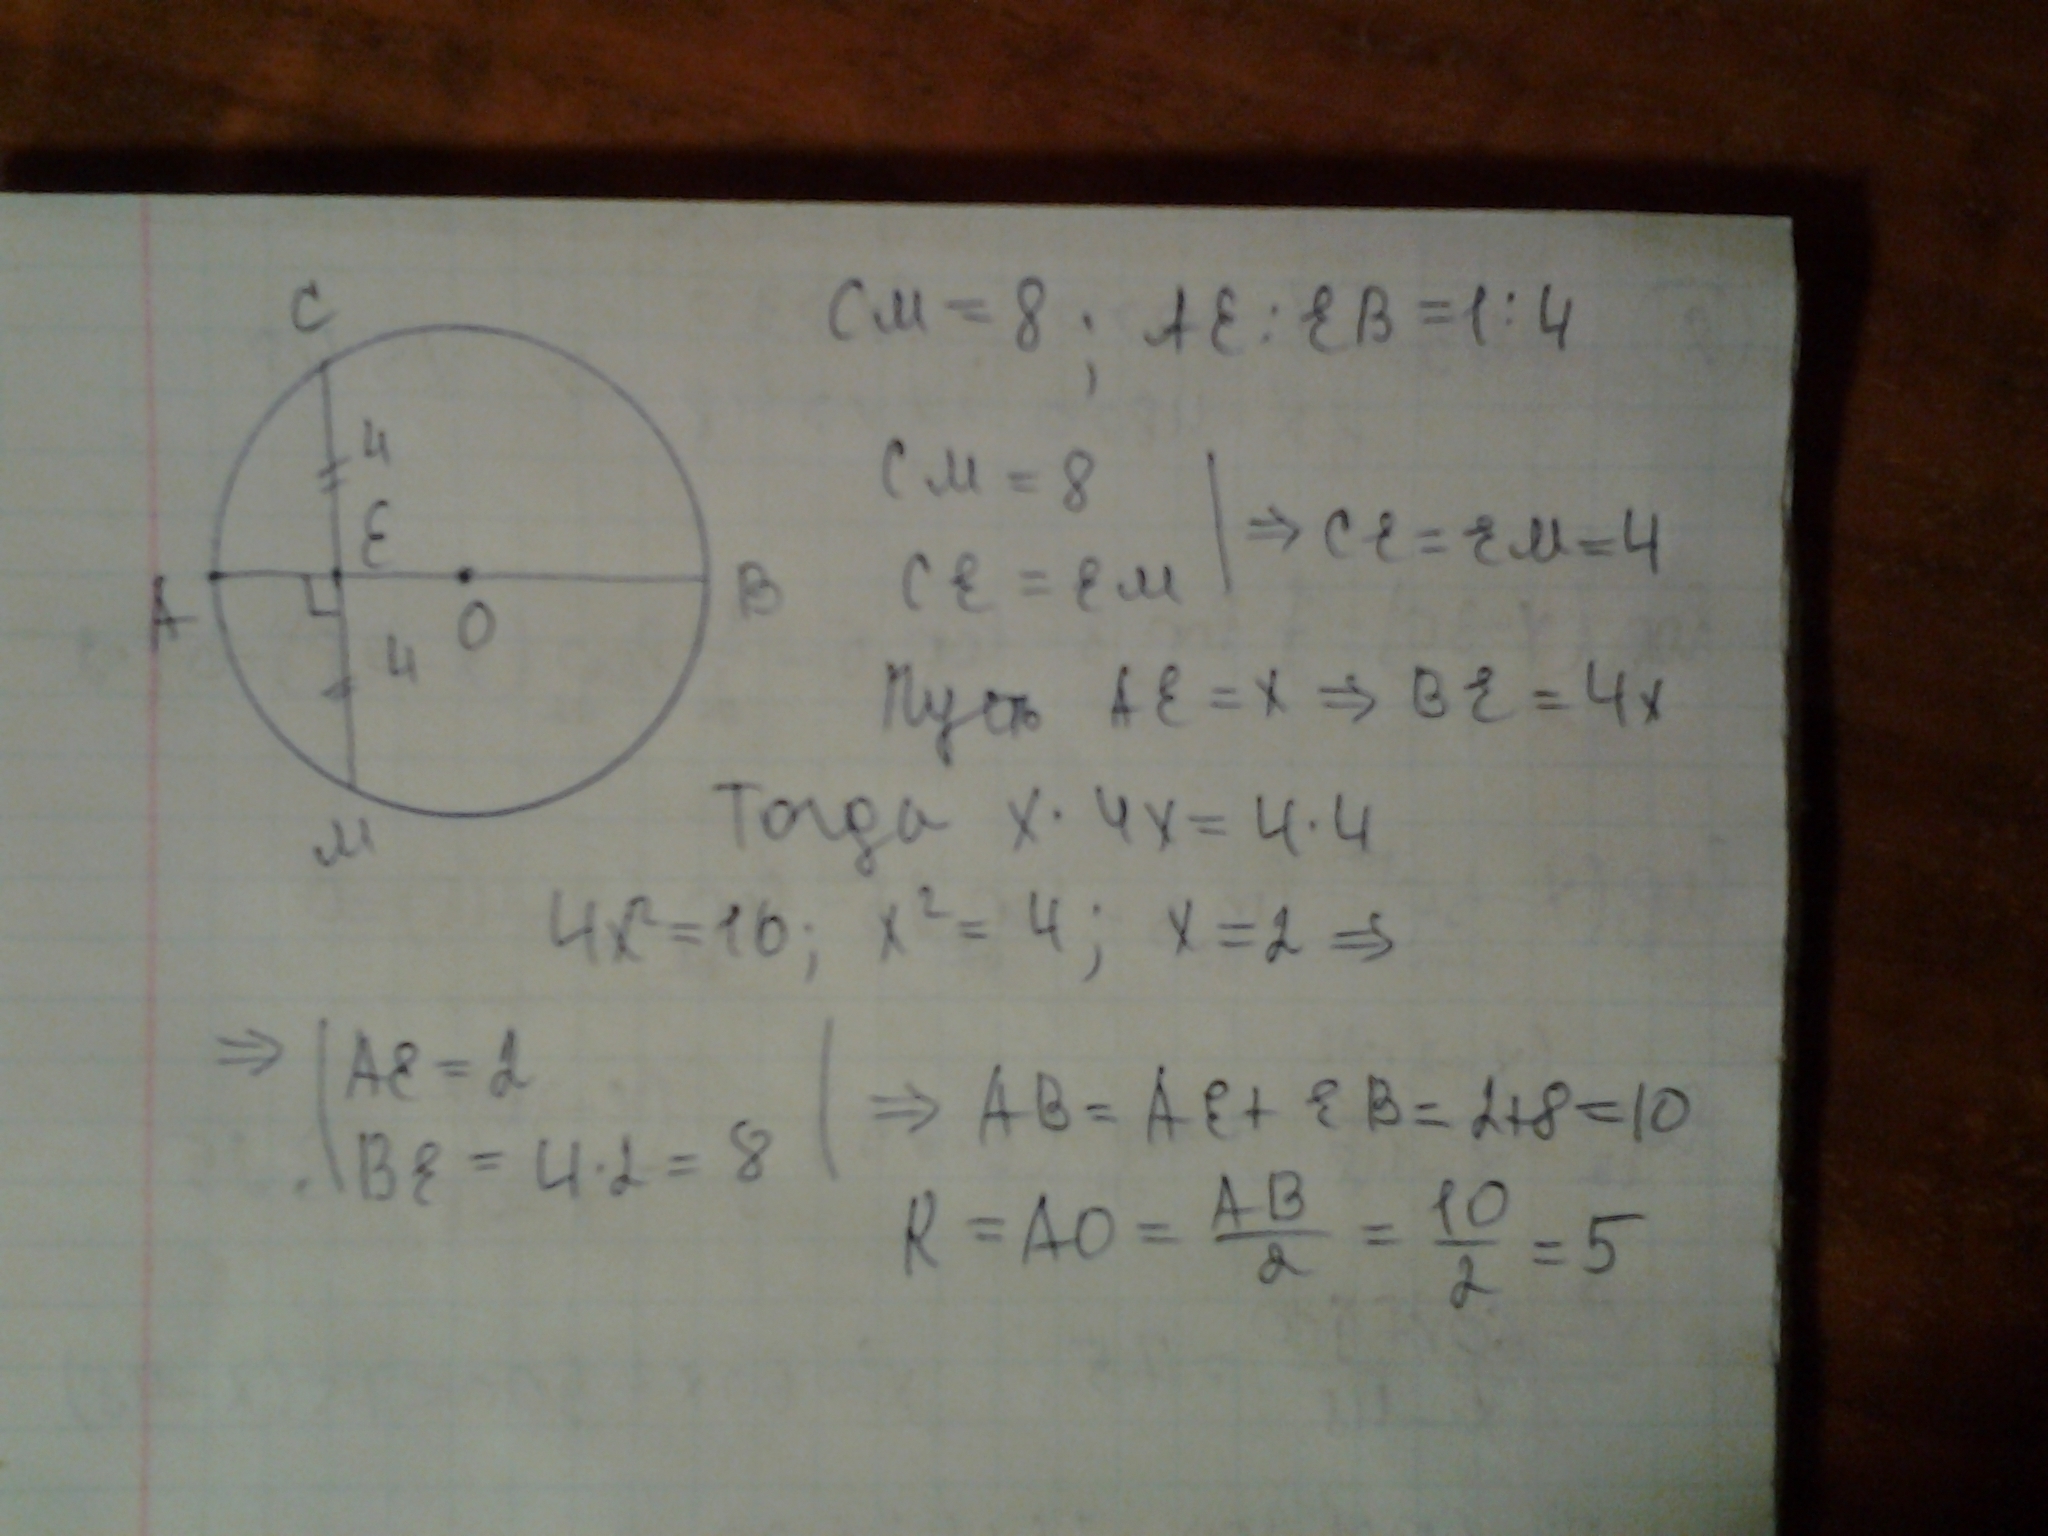 C
4
E
A
O
B
4
M
CM = 8 ; AE : EB = 1 : 4
CM = 8
CE = EM
⇒ CE = EM = 4
Пусть AE = x ⇒ BE = 4x
Тогда x · 4x = 4 · 4
4x² = 16; x² = 4; x = 2 ⇒
⇒ AE = 2
BE = 4·2 = 8
⇒ AB = AE + EB = 2+8 = 10
R = AO = AB/2 = 10/2 = 5